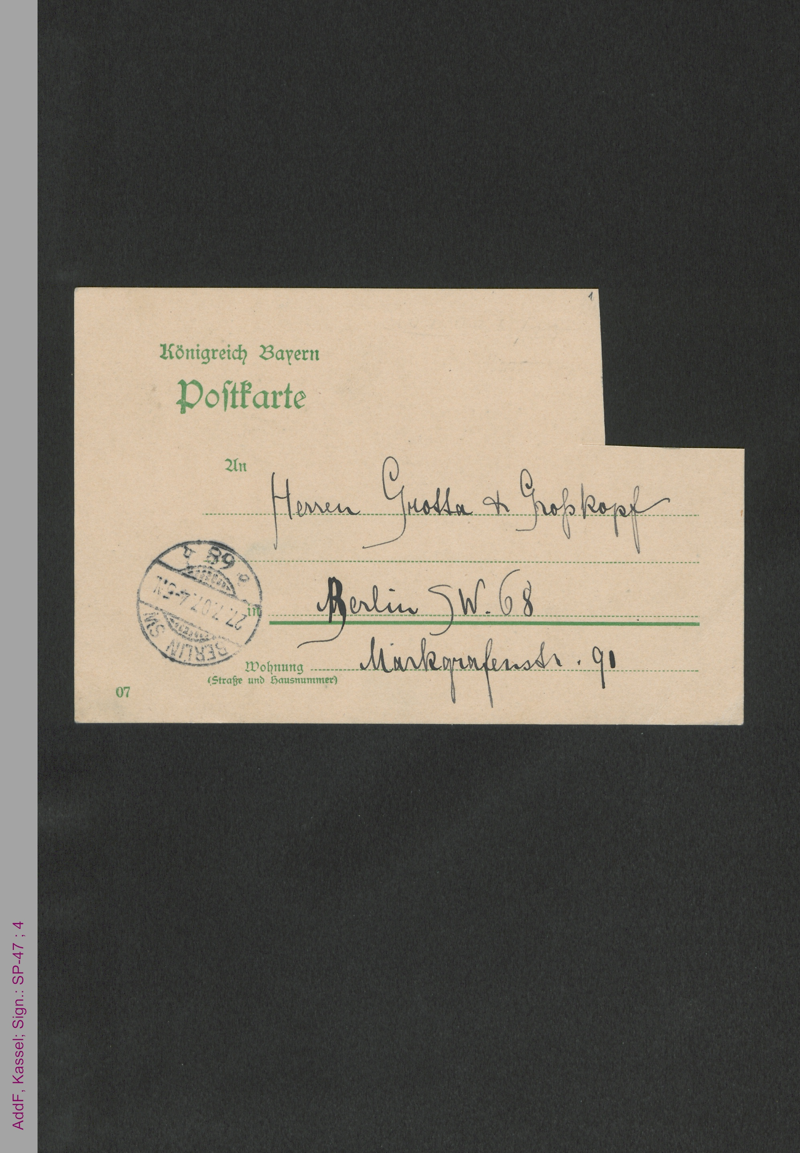 1
Königreich Bayern
Postkarte
An
Herren Grossa & Großkopf
in Berlin SW. 68
Wohnung Markgrafenstr. 91
(Straße und Hausnummer)
07
BERLIN SW
27.7.07. 4-5N.
68
AddF, Kassel; Sign.: SP-47 ; 4